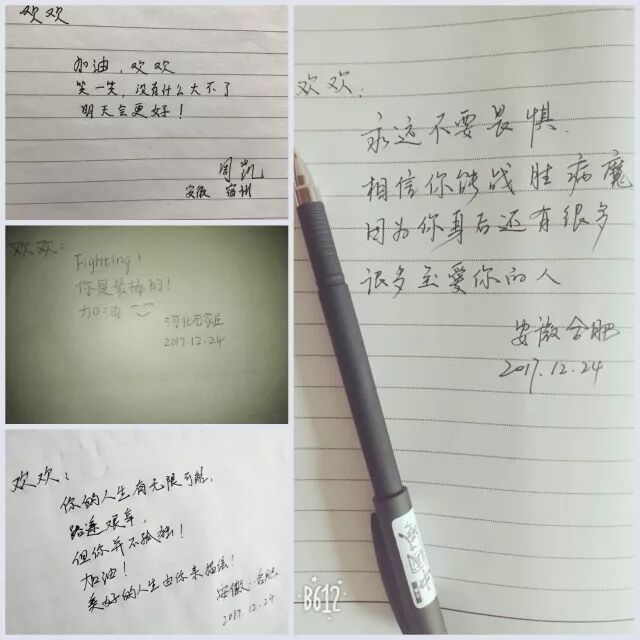 欢欢
加油，欢欢
笑一笑，没有什么大不了
明天会更好！
周凯
安徽 宿州
欢欢：
Fighting！
你是最棒的！
加油
河北石家庄
2017.12.24
欢欢：
你的人生有无限可能，
路途艰辛，
但你并不孤独！
加油！
美好的人生由你来描绘！
安徽·合肥
2017.12.24
欢欢：
永远不要畏惧．
相信你能战胜病魔
因为你身后还有很多
很多至爱你的人
安徽合肥
2017.12.24
B612